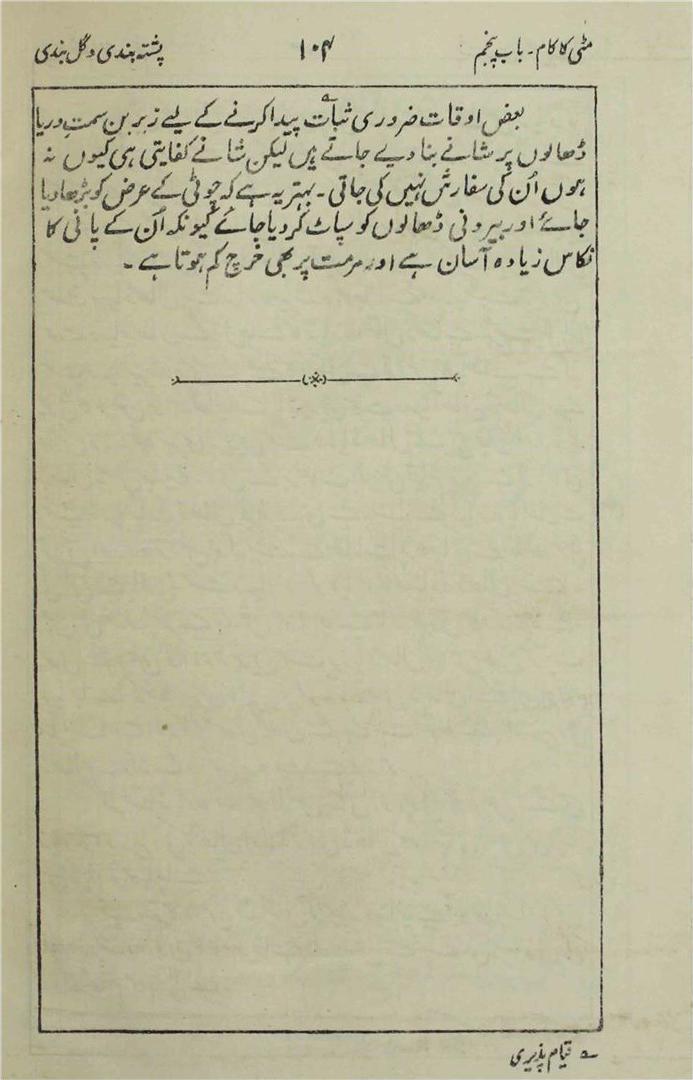 مٹی کا کام - باب پنجم ۱۰۴ پشتہ بندی و گل بندی
بعض اوقات ضروری ثبات؎ پیدا کرنے کے لیے زبرین سمتِ دریا
ڈھالوں پر شانے بنا دیے جاتے ہیں لیکن شانے کفایتی ہی کیوں نہ
ہوں اُن کی سفارش نہیں کی جاتی ۔ بہتر یہ ہے کہ چوٹی کے عرض کو بڑھا دیا
جائے اور بیرونی ڈھالوں کو سپاٹ کر دیا جائے کیونکہ اُن کے پانی کا
نکاس زیادہ آسان ہے اور مرمت پر بھی خرچ کم ہوتا ہے ۔
؎ قیام پذیری